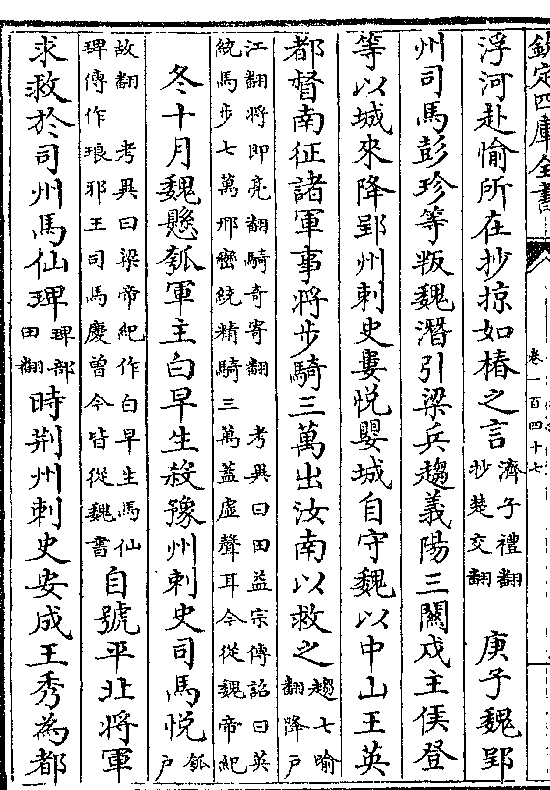 欽定四庫全書
卷一百四十七
浮河赴愉所在抄掠如椿之言濟子禮翻抄楚交翻 庚子魏郢
州司馬彭珍等叛魏潛引梁兵趨義陽三關戍主侯登
等以城來降郢州刺史婁悅嬰城自守魏以中山王英
都督南征諸軍事將步騎三萬出汝南以救之趨七喻翻降戶
江翻將即亮翻騎奇寄翻 考異曰田益宗傳詔曰英統馬步七萬邢巒統精騎三萬蓋虛聲耳今從魏帝紀
冬十月魏懸瓠軍主白早生殺豫州刺史司馬悅瓠戶
故翻 考異曰梁帝紀作白早生馬仙琕傳作琅邪王司馬慶曾今皆從魏書自號平北將軍
求救於司州馬仙琕琕部田翻時荆州刺史安成王秀為都